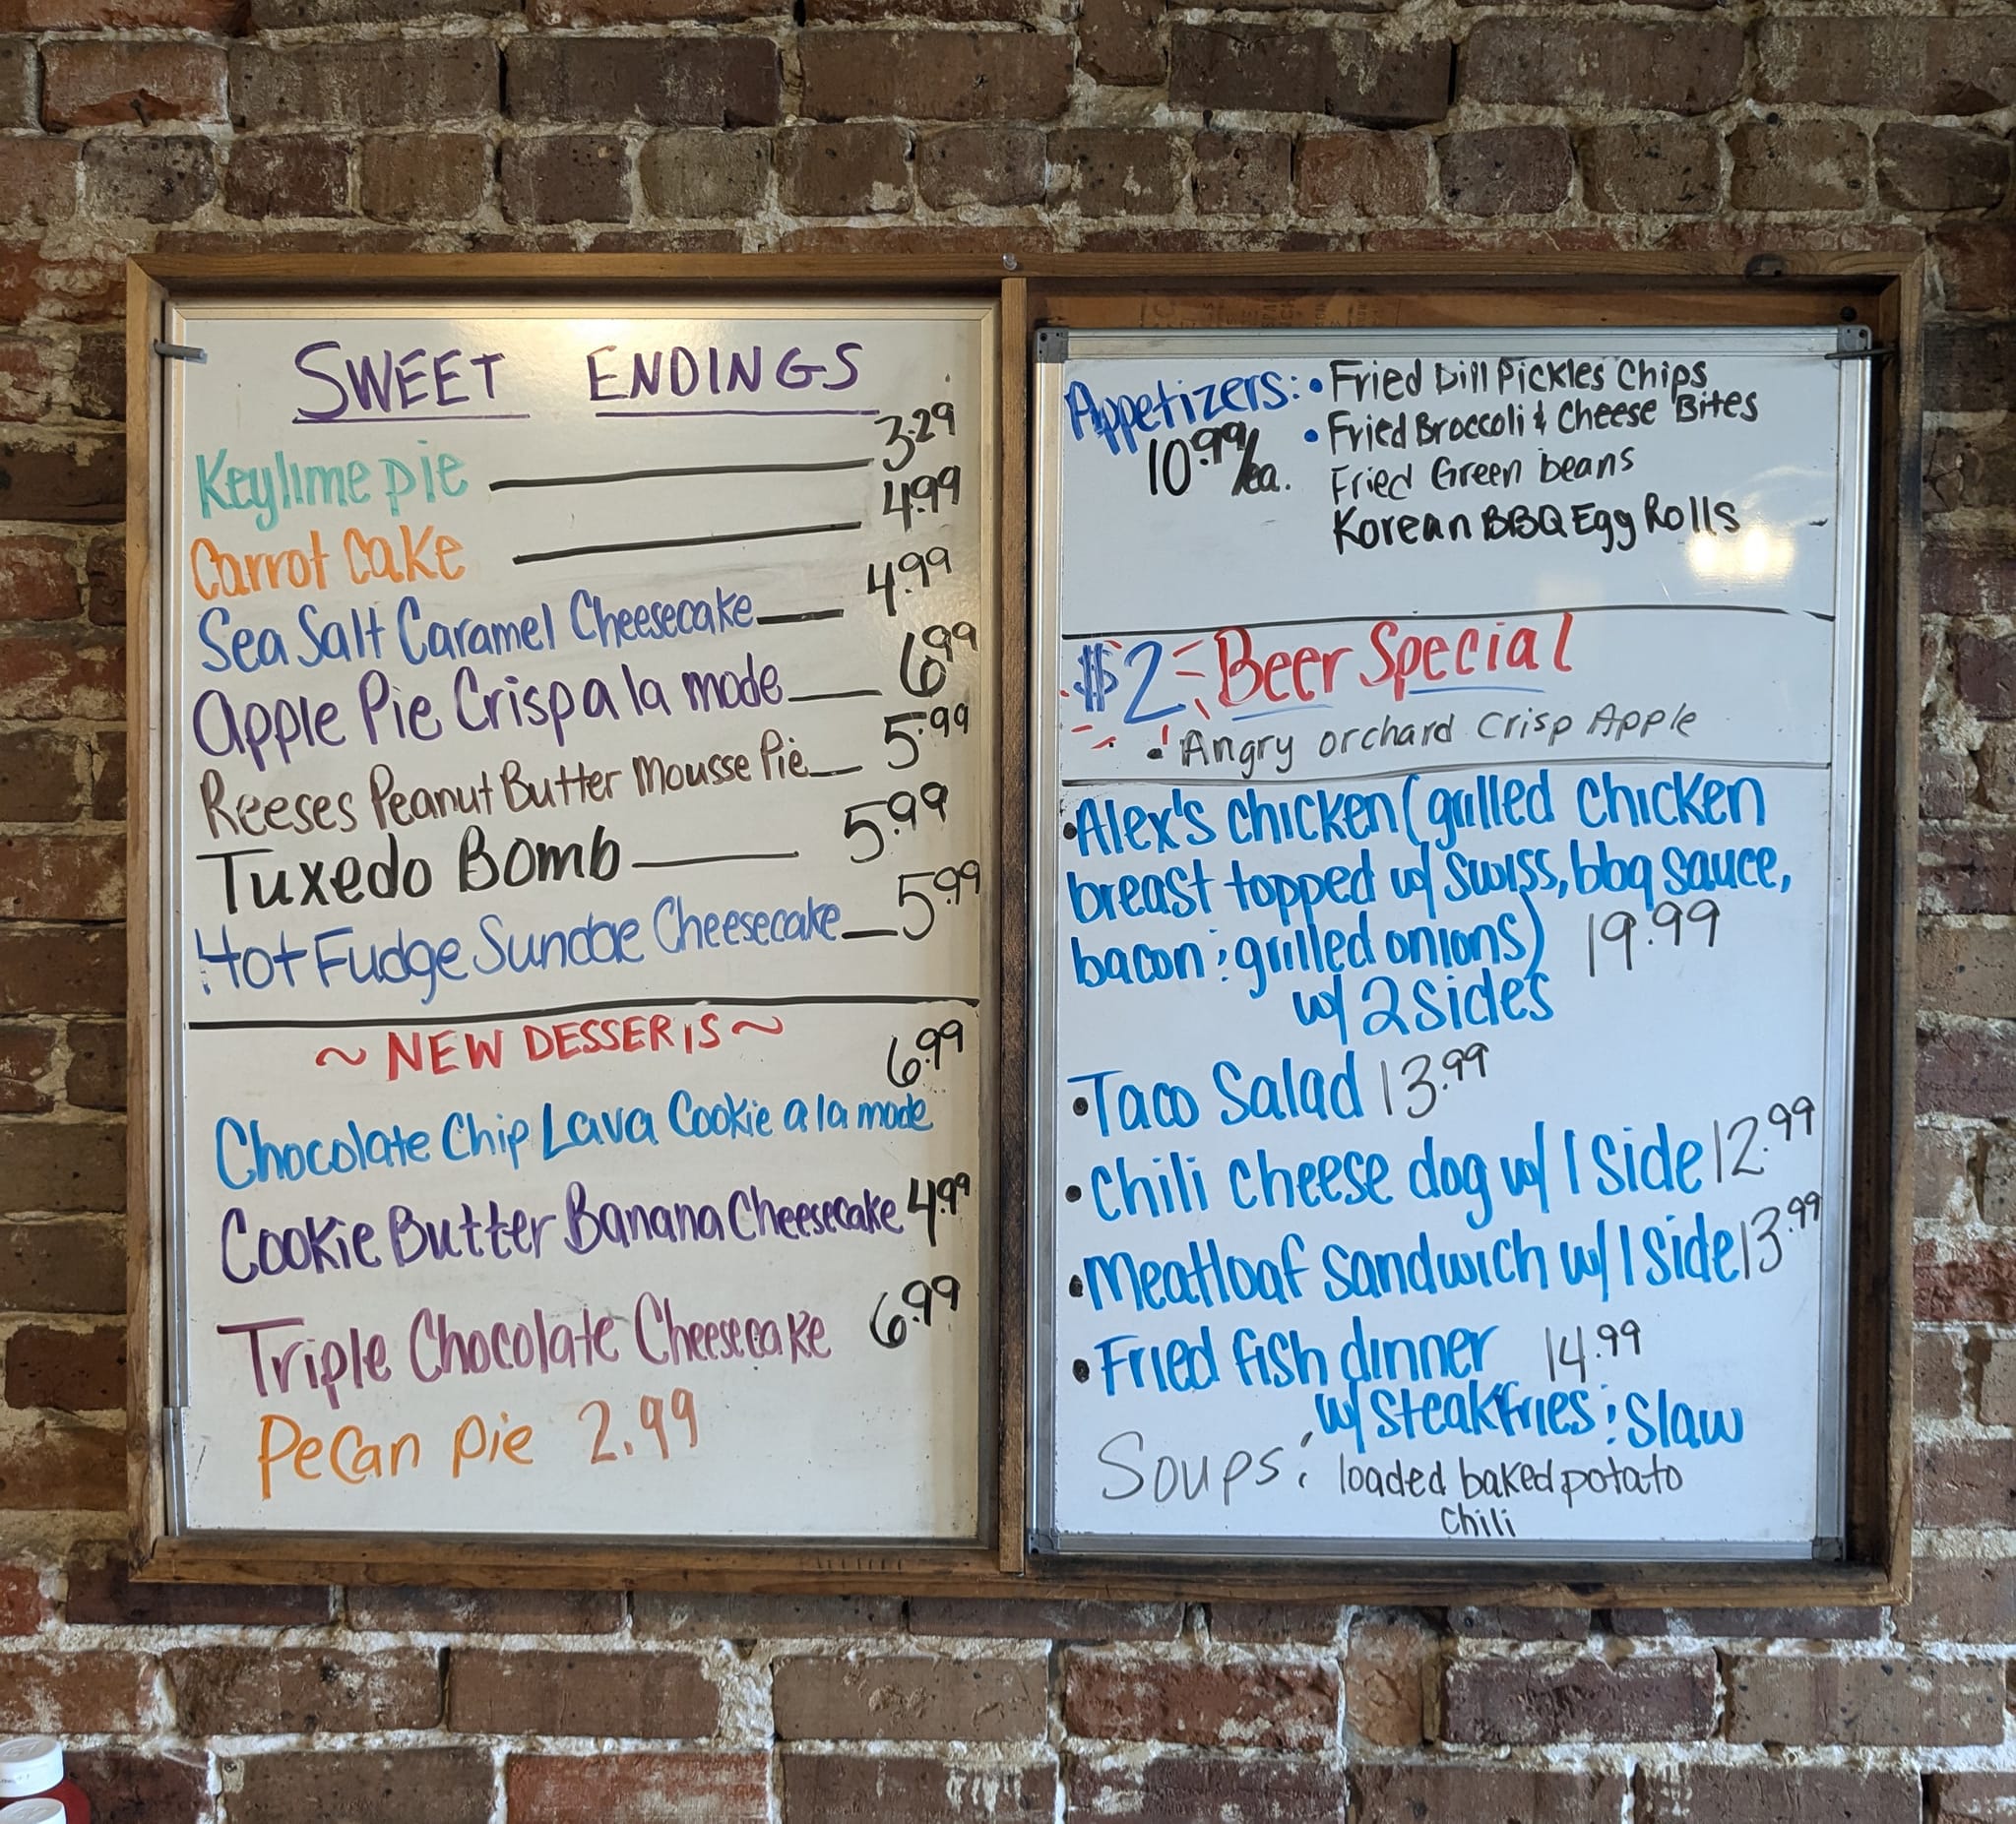 SWEET ENDINGS
Keylime pie 3.29
Carrot Cake 4.99
Sea Salt Caramel Cheesecake 4.99
Apple Pie Crisp a la mode 6.99
Reeses Peanut Butter Mousse Pie 5.99
Tuxedo Bomb 5.99
Hot Fudge Sundae Cheesecake 5.99
~ NEW DESSERTS ~
6.99
Chocolate Chip Lava Cookie a la mode
Cookie Butter Banana Cheesecake 4.99
Triple Chocolate Cheesecake 6.99
Pecan pie 2.99
Appetizers: • Fried Dill Pickles Chips
10.99/ea. • Fried Broccoli & Cheese Bites
Fried Green beans
Korean BBQ Egg Rolls
$2 Beer Special
• Angry Orchard Crisp Apple
• Alex's chicken (grilled chicken
breast topped w/ swiss, bbq sauce,
bacon : grilled onions) 19.99
w/ 2 sides
• Taco Salad 13.99
• Chili cheese dog w/ 1 side 12.99
• Meatloaf sandwich w/ 1 side 13.99
• Fried fish dinner 14.99
w/ steak fries : slaw
Soups: loaded baked potato
chili